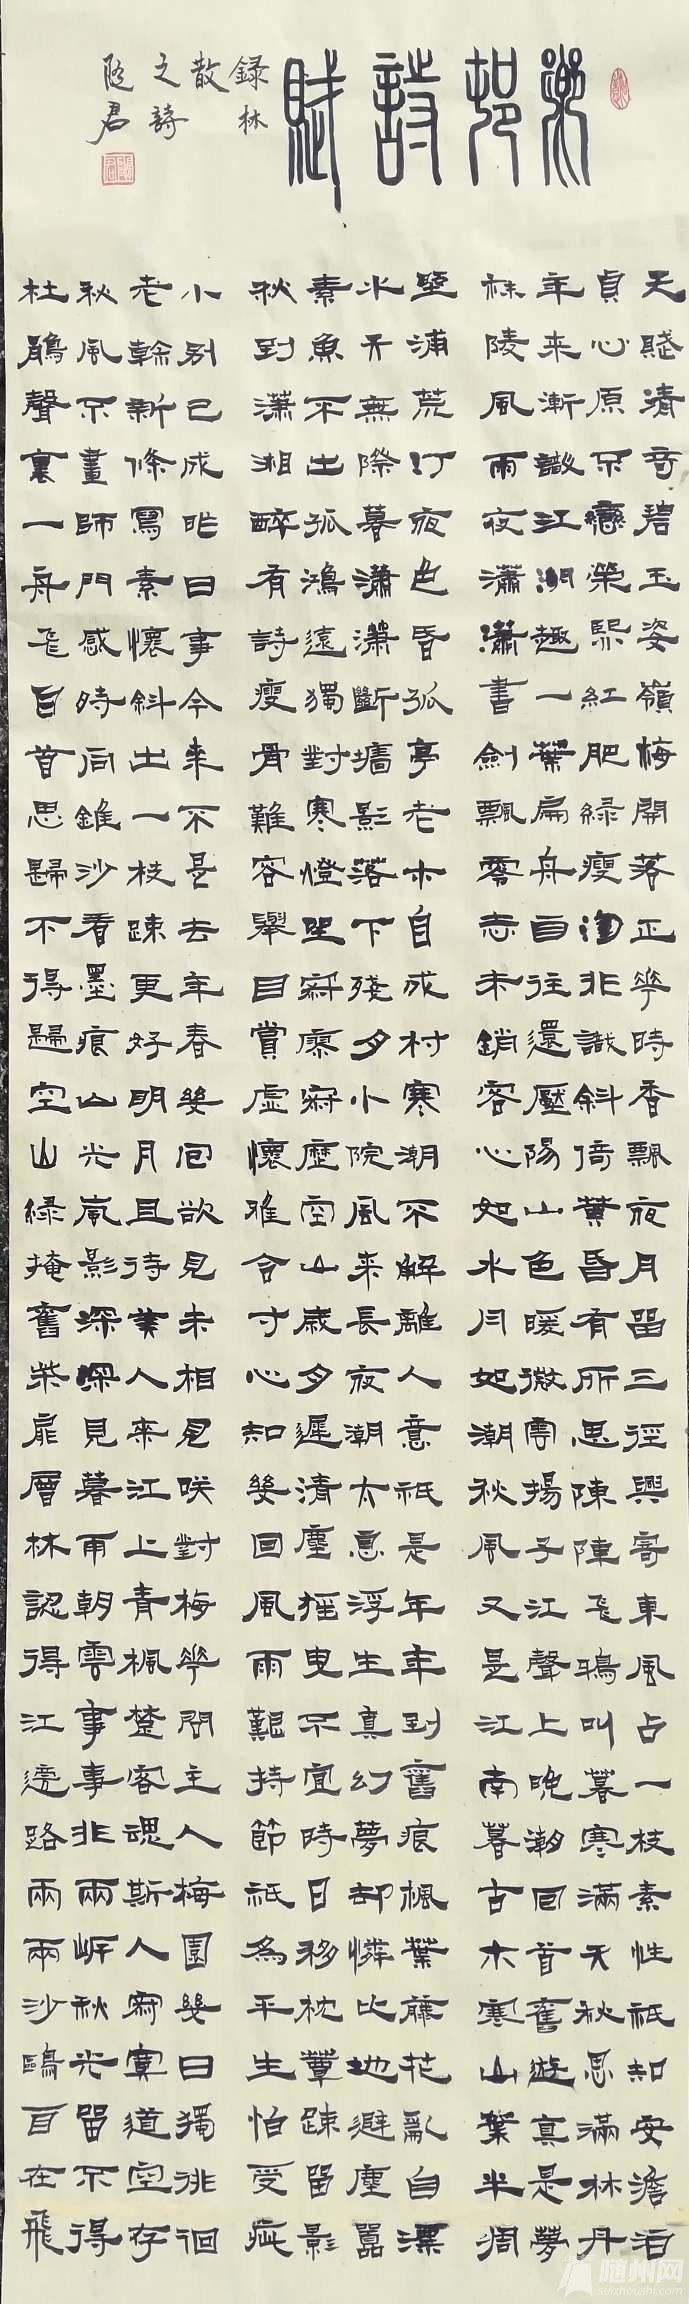 邨詩賦
録林
散
之詩
隨君
天賤清奇碧玉姿嶺梅開落正華時香飄夜月留三徑興寄東風占一枝素性祇知安澹泊
貞心原不戀榮熙紅肥緑瘦渾非識斜倚黄昏有所思陳陳飛鴉叫暮寒滿天秋思滿林丹
年來漸識江湖趣一葉扁舟自往還壓陽山色暖微雲揚子江聲上晚潮回首舊遊真是夢
秣陵風雨夜瀟瀟書劍飄零志未銷客心如水月如潮秋風又是江南暮古木寒山葉半凋
鹽浦荒汀夜色昏孤亭老木自成村寒潮不解離人意祇是年年到舊痕楓葉藤花亂自漂
水天無際暮瀟瀟斷墻影落下殘夕小院風來長夜潮太息浮生真幻夢却憐比地避塵囂
素魚不出孤鴻遠獨對寒燈坐寂寥寂歷空山歲夕遲清塵摇曳不宜時日移枕簟疎留影
秋到瀟湘醉有詩瘦骨難容舉目賞虛懷雅合寸心知幾回風雨艱持節祇為平生怕受疵
小别已成昨日事今来不是去年春幾回欲見未相見咲對梅華問主人梅園幾日獨徘徊
老榦新條寫素懷斜出一枝疎更好明月且待美人來江上青楓楚客魂斯人寂寞道空存
秋風不畫師門感時向錐沙看墨痕山光嵐影深深見暮雨朝雲事事非兩岸秋光留不得
杜鵑聲裏一舟飛白首思歸不得歸空山緑掩舊柴扉層林認得江邊路兩兩沙鷗自在飛
随州网
suizhoushi.com